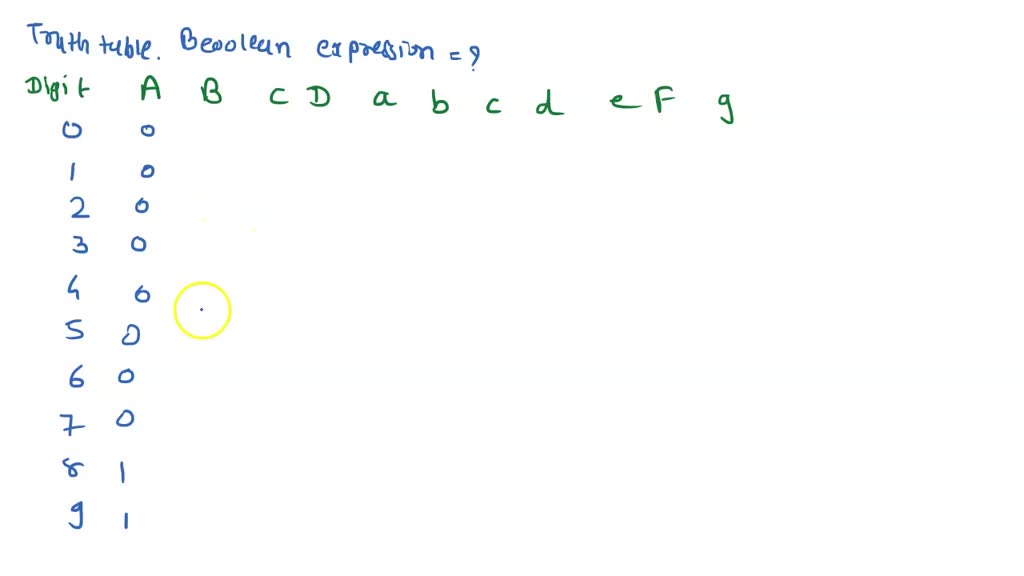 Truth table. Boolean expression = ?
Digit A B C D a b c d e F g
0 0
1 0
2 0
3 0
4 0
5 0
6 0
7 0
8 1
9 1